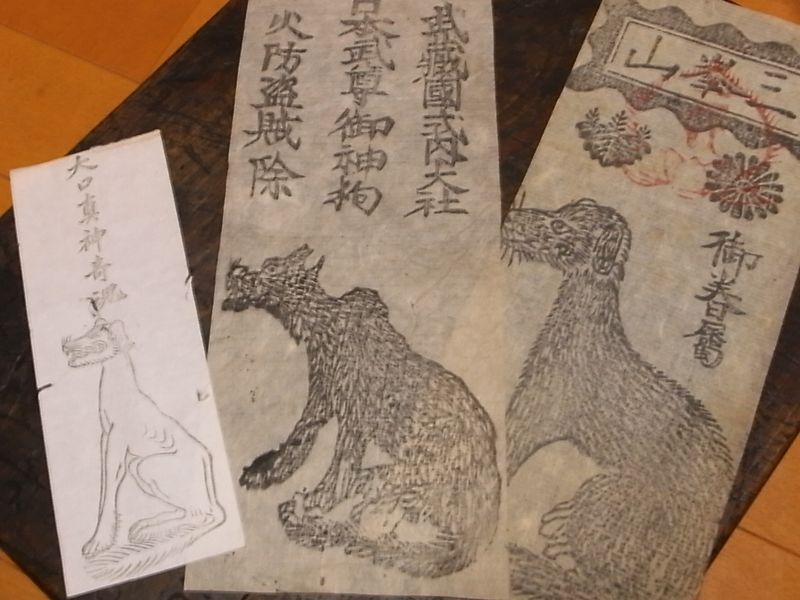 大口真神奇魂
武蔵國式内大社
日本武尊御神狗
火防盗賊除
三峯山
御眷属